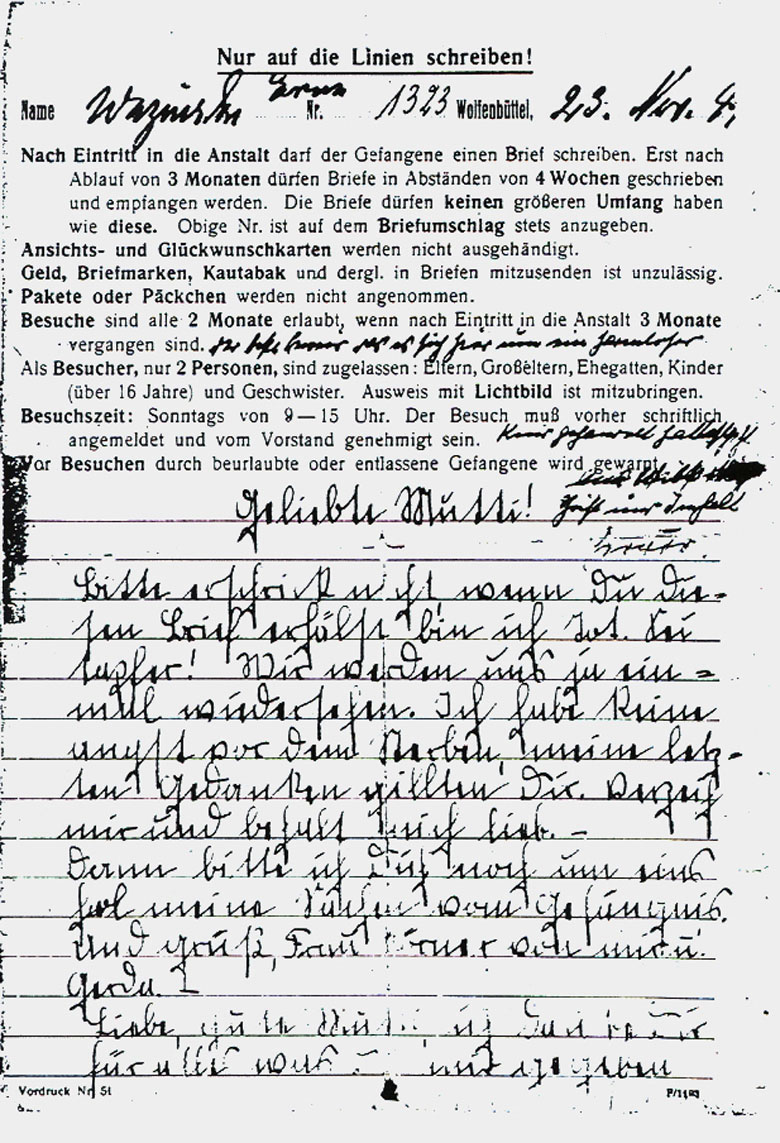 Nur auf die Linien schreiben!
Name Wazinski Erna Nr. 1323 Wolfenbüttel, 23. Nov. 4
Nach Eintritt in die Anstalt darf der Gefangene einen Brief schreiben. Erst nach
Ablauf von 3 Monaten dürfen Briefe in Abständen von 4 Wochen geschrieben
und empfangen werden. Die Briefe dürfen keinen größeren Umfang haben
wie diese. Obige Nr. ist auf dem Briefumschlag stets anzugeben.
Ansichts- und Glückwunschkarten werden nicht ausgehändigt.
Geld, Briefmarken, Kautabak und dergl. in Briefen mitzusenden ist unzulässig.
Pakete oder Päckchen werden nicht angenommen.
Besuche sind alle 2 Monate erlaubt, wenn nach Eintritt in die Anstalt 3 Monate
vergangen sind.
Als Besucher, nur 2 Personen, sind zugelassen: Eltern, Großeltern, Ehegatten, Kinder
(über 16 Jahre) und Geschwister. Ausweis mit Lichtbild ist mitzubringen.
Besuchszeit: Sonntags von 9—15 Uhr. Der Besuch muß vorher schriftlich
angemeldet und vom Vorstand genehmigt sein.
Vor Besuchen durch beurlaubte oder entlassene Gefangene wird gewarnt
Geliebte Mutti!
Bitte erschrick nicht wenn Du die-
sen Brief erhälst bin ich Tot. Sei
tapfer! Wir werden uns ja ein=
mal wiedersehen. Ich habe keine
angst vor dem Sterben, meine letz-
ten Gedanken gillten Dir. Verzeih
mir und behalt mich lieb. –
Dann bitte ich Dich noch um eins
hol meine Sachen vom Gefängnis.
Und grüß, Frau Körner von mir u.
Gerda. –
Liebe, gute Mutti ich danke Dir
für alles was mir gegeben
Vordruck Nr. 51